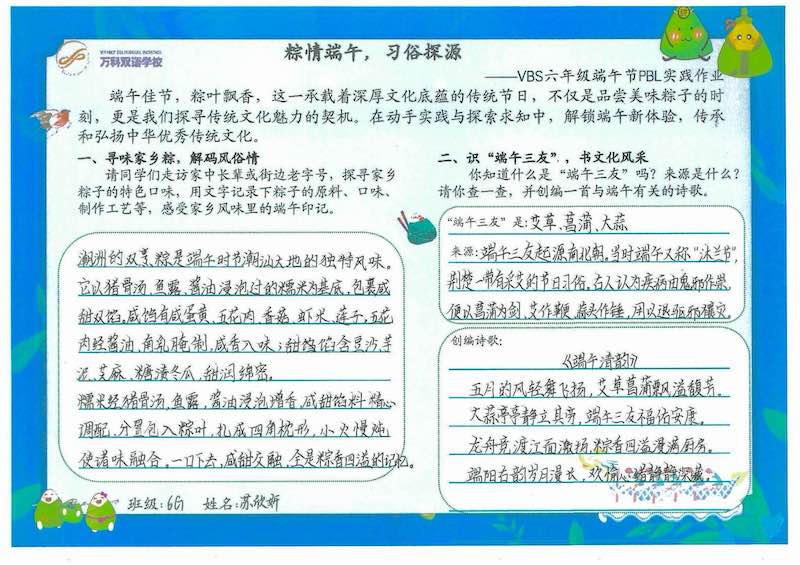 万科双语学校
粽情端午，习俗探源
——VBS六年级端午节PBL实践作业
端午佳节，粽叶飘香，这一承载着深厚文化底蕴的传统节日，不仅是品尝美味粽子的时
刻，更是我们探寻传统文化魅力的契机。在动手实践与探索求知中，解锁端午新体验，传承
和弘扬中华优秀传统文化。
一、寻味家乡粽，解码风俗情
请同学们走访家中长辈或街边老字号，探寻家乡
粽子的特色口味，用文字记录下粽子的原料、口味、
制作工艺等，感受家乡风味里的端午印记。
潮洲的双烹粽是端午时节潮汕大地的独特风味。
它以猪骨汤、鱼露、酱油浸泡过的糯米为基底，包裹咸
甜双馅。咸馅有咸蛋黄、五花肉、香菇、虾米、莲子，五花
肉经酱油、南乳腌制，咸香入味；甜馅馅含豆沙、芋
泥、芝麻、糖渍冬瓜，甜润绵密。
糯米经猪骨汤，鱼露，酱油浸泡增香，咸甜馅料精心
调配，分置包入粽叶，扎成四角枕形，小火慢炖，
使诸味融合。一口下去，咸甜交融，全是粽香四溢的记忆。
班级：6G 姓名：苏欣妍
二、识“端午三友”，书文化风采
你知道什么是“端午三友”吗？来源是什么？
请你查一查，并创编一首与端午有关的诗歌。
“端午三友”是：艾草、菖蒲、大蒜
来源：端午三友起源南北朝。当时端午又称“沐兰节”，
荆楚一带有采艾的节日习俗。古人认为疾病由鬼邪作祟，
便以菖蒲为剑、艾作鞭、蒜头作锤，用以退驱邪禳灾。
创编诗歌：
《端午清韵》
五月的风轻舞飞扬，艾草菖蒲飘溢馥芳。
大蒜亭亭静立其旁，端午三友福佑安康。
龙舟竞渡江面激扬，粽香四溢漫满厨房。
端阳古韵岁月漫长，欢愉心绪静静深藏。